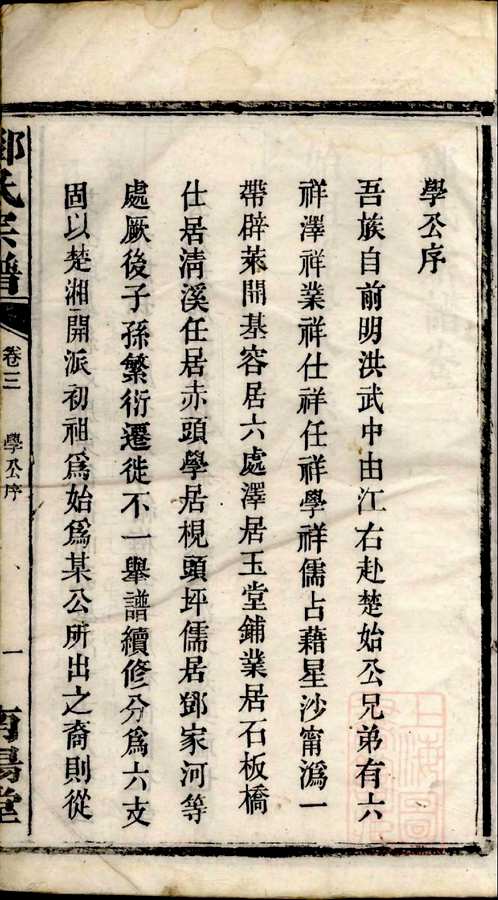 學公序
吾族自前明洪武中由江右赴楚始公兄弟有六
祥澤祥業祥仕祥任祥學祥儒占藉星沙甯溈一
帶辟萊開基容居六處澤居玉堂鋪業居石板橋
仕居淸溪任居赤頭學居梘頭坪儒居鄧家河等
處厥後子孫繁衍遷徙不一舉譜續修分爲六支
固以楚湘開派初祖爲始爲某公所出之裔則從
氏宗譜
卷三
學公序
一
南陽堂
上海圖